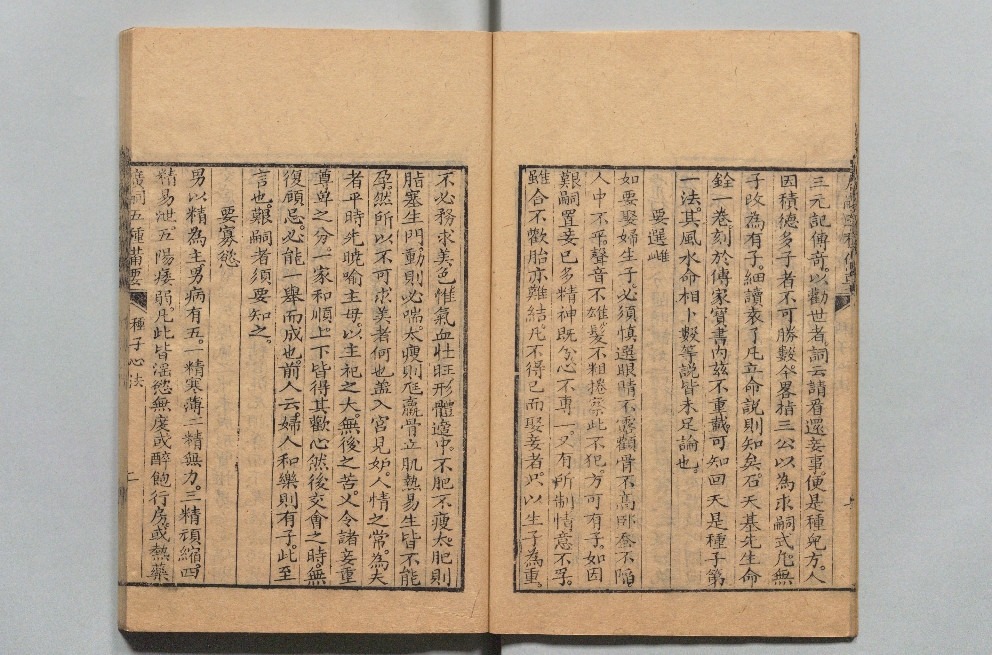 三元記傳奇以勸世者詞云請看還妾事便是種兒方。人
因積德多子者不可勝數今畧揹三公以為求嗣式凢無
子改為有子。細讀袁了凡立命說則知矣。石天基先生命
銓一卷刻於傳家寶書內茲不重載可知回天是種子第
一法其風水命相卜數等說皆未足論也。
要選雌
如要娶婦生子必須慎選眼睛不露顴骨不高卧臍不陷
人中不平。聲音不雄髮不粗捲案此不犯。方可有子。如因
艱嗣置妾已多精神旣分心不專一又有所制情意不孚。
雖合不歡胎亦難結凡不得已而娶妾者只以生子為重。
不必務求美色惟氣血壯旺形體適中。不肥不瘦太肥則
脂塞生門動則必喘。太瘦則尫羸骨立肌熱易生皆不能
孕然所以不可求美者何也蓋入宮見妒。人情之常。為夫
者平時先曉喻主母。以主祀之大。無後之苦。又令諸妾重
尊卑之分。一家和順。上下皆得其歡心然後交會之時。無
復顧忌。必能一舉而成也。前人云婦人和樂則有子。此至
言也。艱嗣者須要知之。
要寡慾
男以精為主。男病有五。一精寒薄。二精無力。三精頑縮。四
精易泄。五陽痿弱。凡此皆淫慾無度或醉飽行房。或熱藥
廣嗣五種備要
種子心法
二